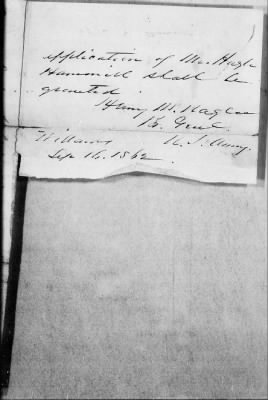 application of Mr. Hugh
Hammill shall be
granted.
Henry M. Naglee
B. Genl.
Williams U. S. Army.
Sep 16. 1862.